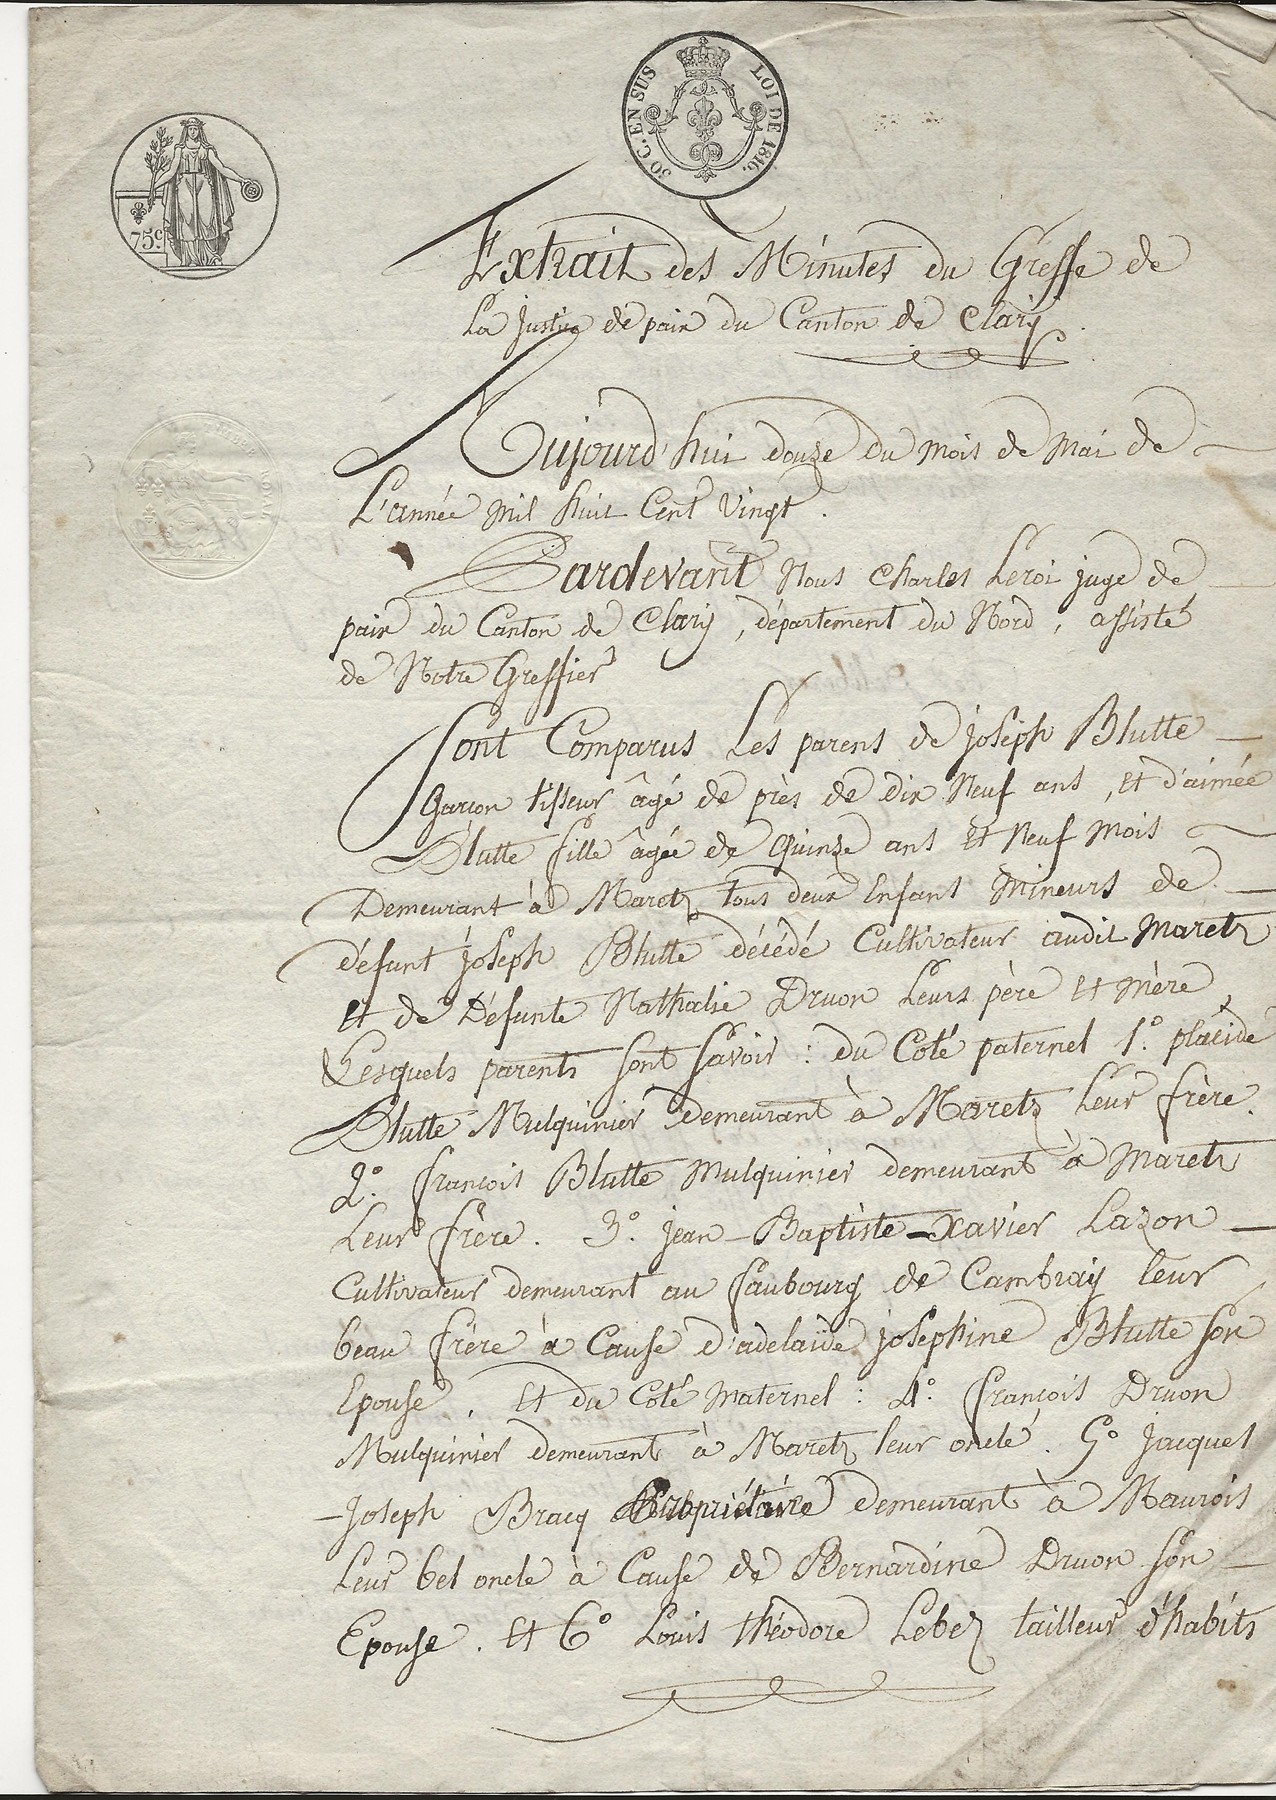 50 C. EN SUS LOI DE 1816.
75c.
Extrait des Minutes du Greffe de
La justice de paix du Canton de Clary.
Aujourd'hui douze du mois de Mai de
L'année mil huit Cent Vingt.
Pardevant Nous Charles Leroi juge de
paix du Canton de Clary, département du Nord, assisté
de Notre Greffier
Sont Comparus Les parens de joseph Blutte
Garçon tisseur âgé de près de dix Neuf ans, et d'aimée
Blutte fille âgée de Quinze ans et Neuf mois
Demeurant à Maretz tous deux Enfant Mineurs de
défunt joseph Blutte décédé Cultivateur audit Maretz
et de Défunte Nathalie Druon Leurs père et mère
Lesquels parents sont savoir : du Coté paternel 1° placide
Blutte Mulquinier demeurant à Maretz Leur frère.
2° françois Blutte mulquinier demeurant à Maretz
Leur frère. 3° jean-Baptiste-xavier Lazon
Cultivateur demeurant au faubourg de Cambray leur
beau frère à Cause d'adelaïde josephine Blutte son
Epouse, et du Coté maternel : 4° françois Druon
Mulquinier demeurant à Maretz leur oncle. 5° jacques
-joseph Bracq Propriétaire demeurant à Maurois
Leur bel oncle à Cause de Bernardine Druon son
Epouse. et 6° Louis théodore Lebez tailleur d'habits